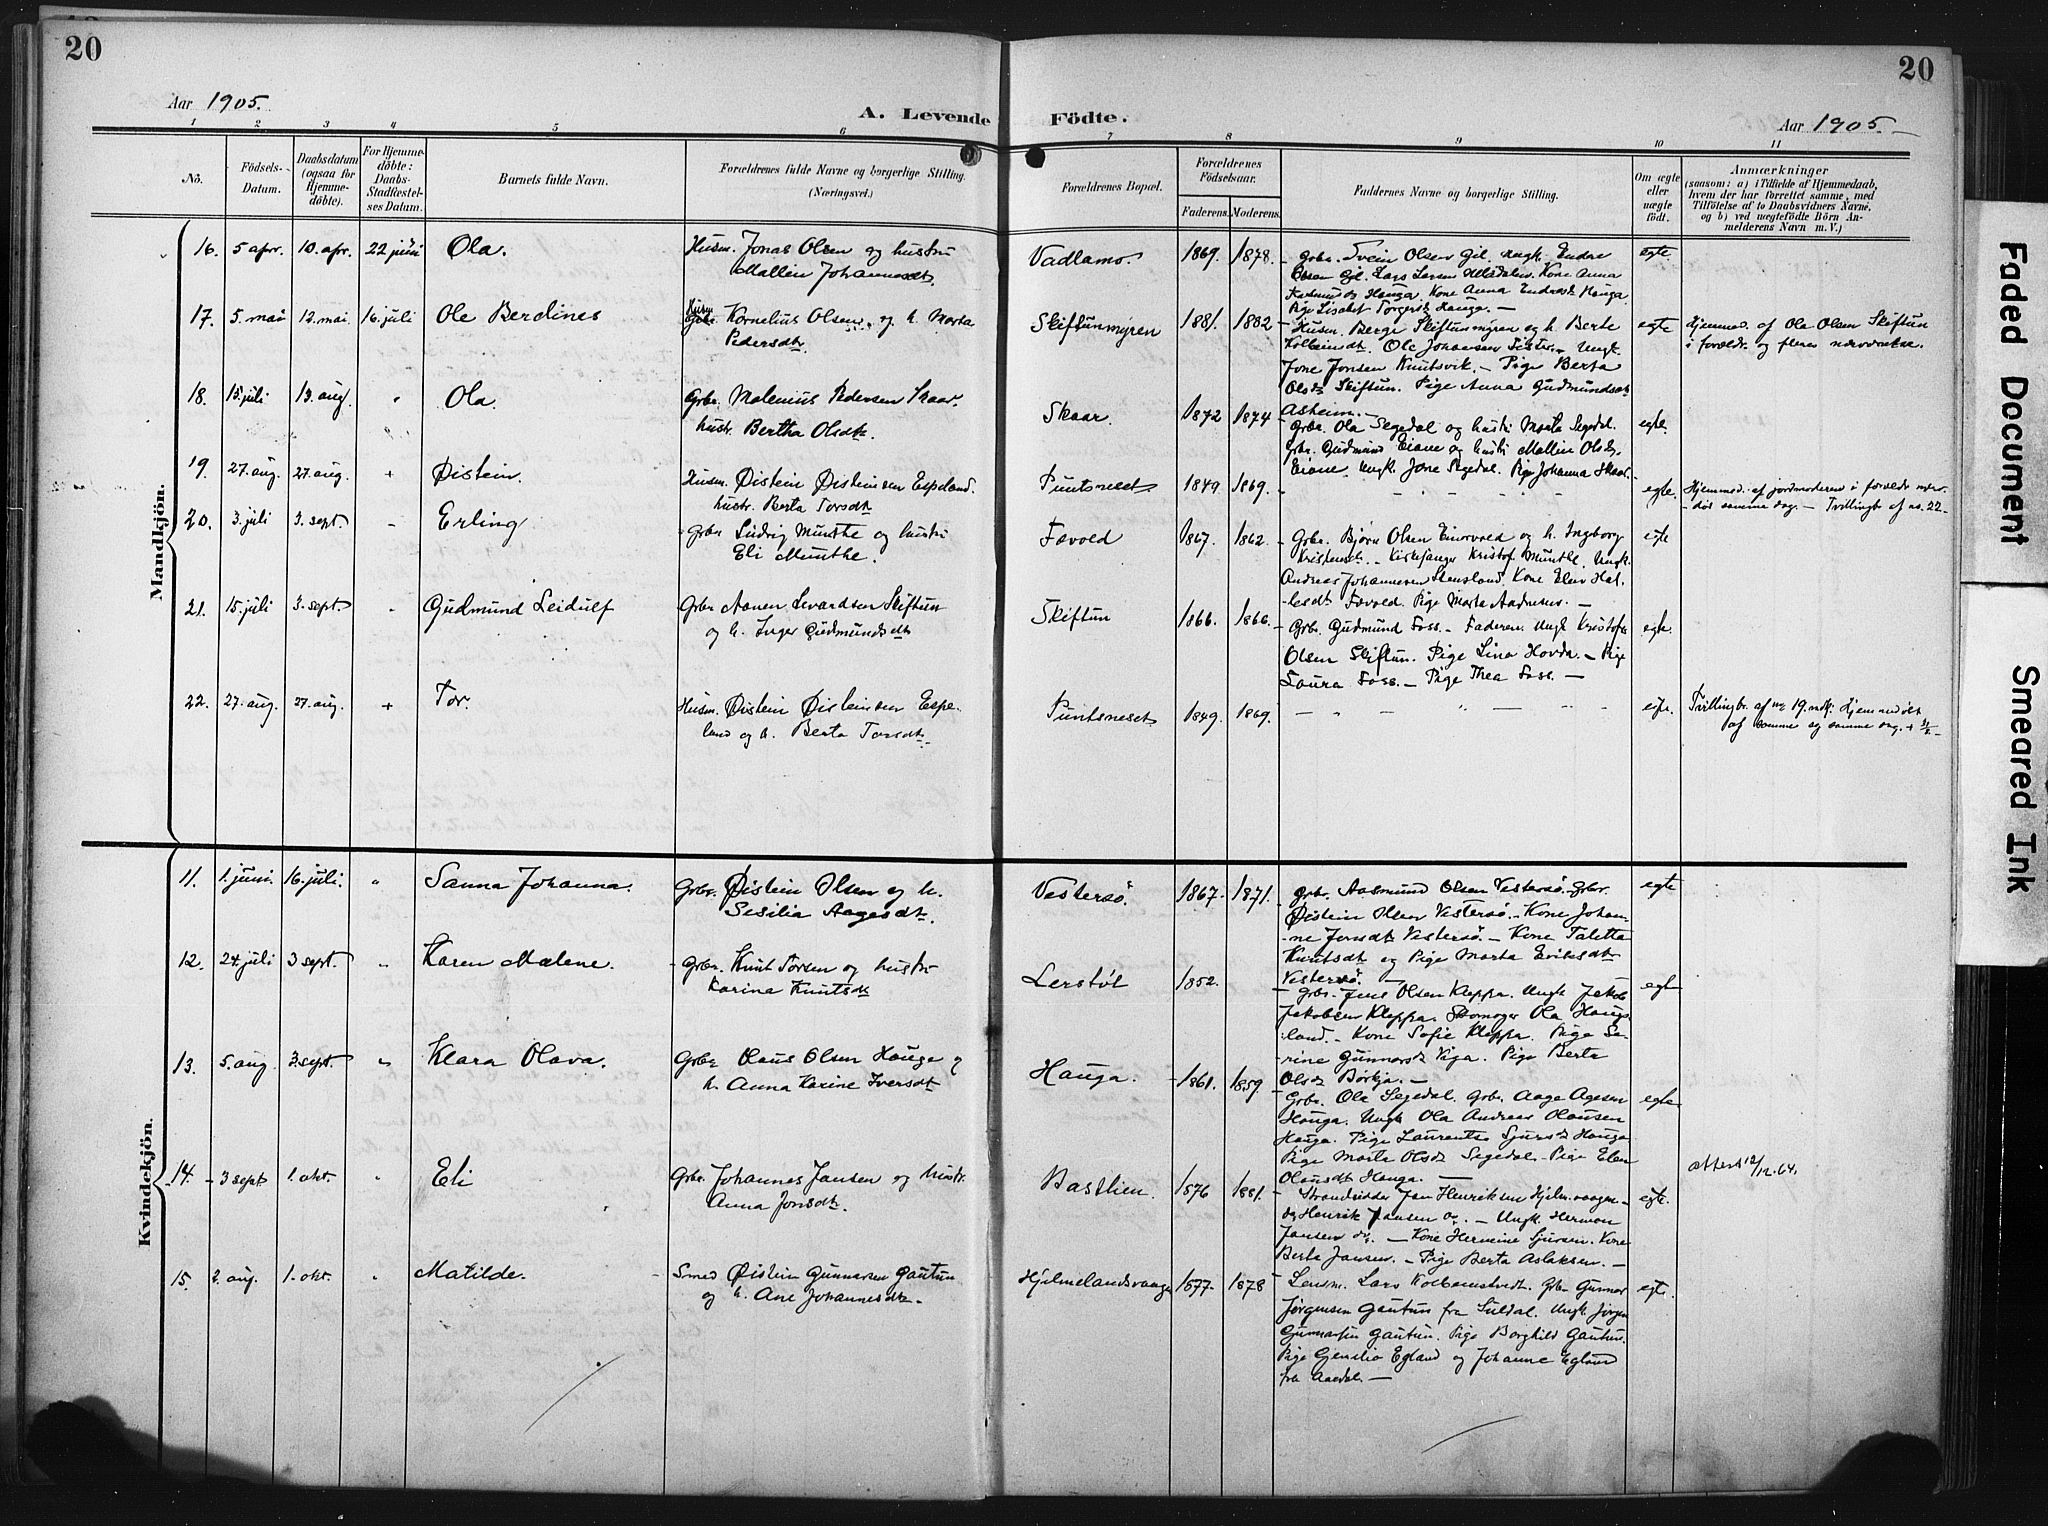 20
20
Aar 1905.
A. Levende Födte.
Aar 1905.
1 2 3 4 5 6 7 8 9 10 11
No.
Födsels-Datum.
Daabsdatum (ogsaa for Hjemme-döbte).
For Hjemme-döbte: Daabs-Stadfestel-ses Datum.
Barnets fulde Navn.
Forældrenes fulde Navne og borgerlige Stilling. (Næringsvei.)
Forældrenes Bopæl.
Forældrenes Födselsaar.
Faderens. Moderens.
Faddernes Navne og borgerlige Stilling.
Om ægte eller uægte födt.
Anmærkninger
(saasom: a) i Tilfælde af Hjemmedaab,
hvem der har forrettet samme, med
Tilföielse af to Daabsvidners Navne,
og b) ved uegtefödte Börn An-
melderens Navn m. V.)
Mandkjön.
16. 5 apr. 10. apr. 22 juni Ola.
Husm. Jonas Olsen og hustru
Mallin Johannesdt.
Vadlamo. 1869. 1878.
Grbr. Svein Olsen Gil. Ungk. Endre
Olsen Gil. Lars Larsen Kone Anna
Hauga. Kone Anna Endresdt Hauga.
Pige Lisabet Torgersdt Hauga. —
egte.
17. 5. mai 12. mai. 16. juli Ole Berdines
Husm Grbr. Kornelius Olsen og h. Marta
Pedersdtr.
Skiftunmyren 1881. 1882
Husm. Berge Skiftunmyren og h. Berte
Kolbeinsdt. Ole Johansen Tister. — Ungk.
Jone Jonsen Knutsvik. — Pige Berta
Olsdt Skiftun. Pige Anna Gudmundsdt
Asheim. —
egte
Hjemmed. af Ola Olsen Skiftun
i forældr. og fleres nærværelse.
18. 15. juli 13. aug. " Ola.
Grbr. Malenius Pedersen Skaar.
hustr. Bertha Olsdtr.
Skaar. 1872 1874
Grbr. Ola Segedal og hustr. Marta Segedal.
Grbr. Gudmund Eiane og hustr. Mallin Olsdt.
Eiane. Ungk. Jone Segedal. Pige Johanna Skaar.
egte.
19. 27. aug. 27. aug. + Øistein.
Husm. Øistein Øisteinsen Espeland.
hustr. Berta Torsdt
Puntsneset 1849 1869.
egte.
Hjemmed. af jordmoderen i forældr. nær.
død samme dag. — Tvillingb. af no. 22.
20. 3. juli 3. sept. " Erling
Grbr Ludvig Munthe og hustr.
Eli Munthe.
Fævold 1867. 1862.
Grbr. Bjørn Olsen Einorvold og h. Ingborg
Kristensdt. — Kirkesanger Kristof. Munthe. Ungk.
Andreas Johannesen Stensland. Kone Elen Hal-
lesdt Fævold. Pige Marta Andresen. —
egte
21. 15. juli 3. sept. " Gudmund Leidulf
Grbr Aanen Sevardsen Skiftun
og h. Inger Gudmundsdt
Skiftun 1866. 1866.
Grbr. Gudmund Foss. — Faderen. Ungk Kristofer
Olsen Skiftun. Pige Lina Hovda. — Pige
Laura Foss. — Pige Thea Foss. —
egte.
22. 27. aug. 27. aug. + Tor.
Husm. Øistein Øisteinsen Espe-
land og h. Berta Torsdt.
Puntsneset 1849. 1869.
egte.
Tvillingb. af no 19. Hjemmedøbt
af samme og samme dag.
Kvindekjön.
11. 1. juni. 16. juli. " Sanna Johanna.
Grbr. Øistein Olsen og h.
Sesilia Aagesdt.
Vestersø. 1867. 1871.
Grbr. Aasmund Olsen Vestersø. Gbr.
Øistein Olsen Vestersø. — Kone Johan-
ne Jonsdt Vestersø. — Kone Taletta
Knutsdt og Pige Marta Eriksdt
Vestersø. —
egte
12. 24. juli 3 sept. " Karen Malene.
Grbr. Knut Torsen og hustr.
Karina Knutsdt
Lerstøl 1852.
Grbr. Jens Olsen Kleppa. Ungk. Jakob
Jakobsen Kleppa. Skomager Ola Haugs-
land. — Kone Sofie Kleppa. Pige Se-
rine Gunnarsdt Viga. Pige Berta
Olsdt Børkja. —
egte
13. 5. aug. 3. sept. " Klara Olava.
Grbr Olaus Olsen Hauge og
h. Anna Karine Iversdt
Hauga. 1861. 1859.
Grbr. Ola Segedal. Grbr. Aage Agesen
Hauga. Ungk Ola Andreas Olausen
Hauga. Pige Laurentse Sjursdt Hauga.
Pige Marta Olsdt Segedal. Pige Elen
Olausdt Hauga. —
egte
14. 3 sept. 1. okt. " Eli
Grbr Johannes Jansen og hustr.
Anna Jonsdt.
Bastlien. 1876 1881.
Strandsidder Jan Henriksen Hjelm.vaagen
og Henrik Jansen do. — Ungk. Herman
Jansen do. — Kone Hermine Sjursen. Kone
Berta Jansen. — Pige Berta Aslaksen. —
egte.
Attest 12/12.64.
15. 2. aug. 1. okt. " Matilde.
Smed Øistein Gunnarsen Gautun
og h. Ane Johannesdt.
Hjelmelandsvaagen 1877. 1878
Lensm. Lars Kolbenstvedt. Gbr Gunnar
Jørgensen Gautun fra Suldal. Ungk. Jørgen
Gunnarsen Gautun. Pige Borghild Gautun.
Pige Egland og Johanne Egland
fra Aardal. —
egte.
Faded Document
Smeared Ink